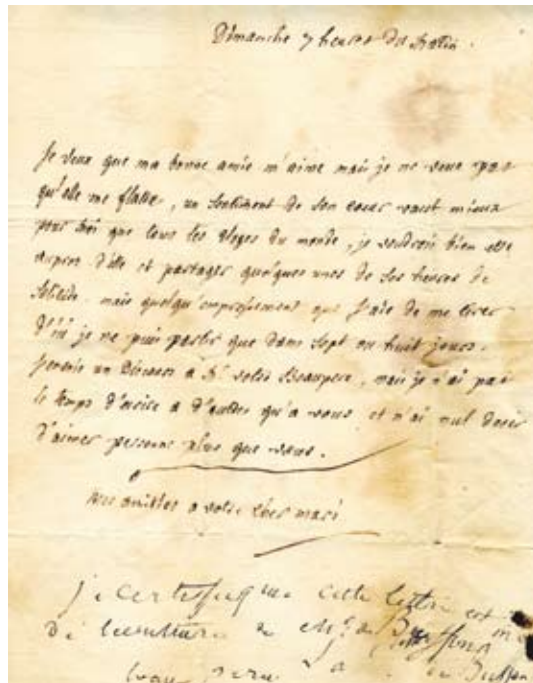 Dimanche 7 heures du matin.
Je veux que ma bonne amie m'aime mais je ne veux pas
qu'elle me flatte, un sentiment de son coeur vaut mieux
pour moi que tous les éloges du monde, je voudrois bien etre
aupres d'elle et partager quelques unes de ses heures de
solitude. mais quelqu'empressement que j'aie de me tirer
d'ici je ne puis partir que dans sept ou huit jours.
J'envoie un Discours a Mr votre Beaupere, mais je n'ai pas
le temps d'ecrire a d'autres qu'a vous, et n'ai nul desir
d'aimer personne plus que vous.
Mes amitiés a votre cher mari
je certifie que cette lettre est
De l'ecriture de Mr de Buffon
beau pere